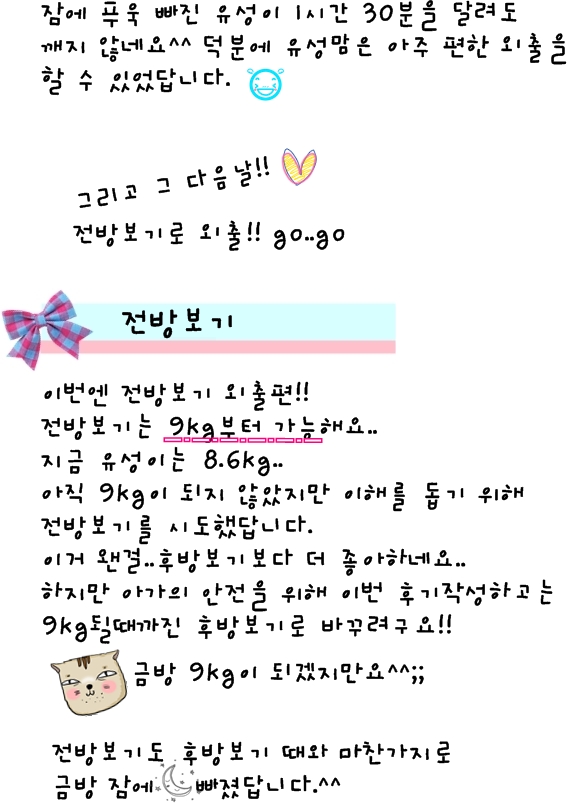 잠에 푸욱 빠진 유성이 1시간 30분을 달려도
깨지 않네요^^ 덕분에 유성맘은 아주 편한 외출을
할 수 있었답니다.
그리고 그 다음날!!
전방보기로 외출!! go..go
전방보기
이번엔 전방보기 외출편!!
전방보기는 9kg부터 가능해요..
지금 유성이는 8.6kg..
아직 9kg이 되지 않았지만 이해를 돕기 위해
전방보기를 시도했답니다.
이거 왠걸..후방보기보다 더 좋아하네요..
하지만 아가의 안전을 위해 이번 후기작성하고는
9kg될때까진 후방보기로 바꾸려구요!!
금방 9kg이 되겠지만요^^;;
전방보기도 후방보기 때와 마찬가지로
금방 잠에 빠졌답니다.^^